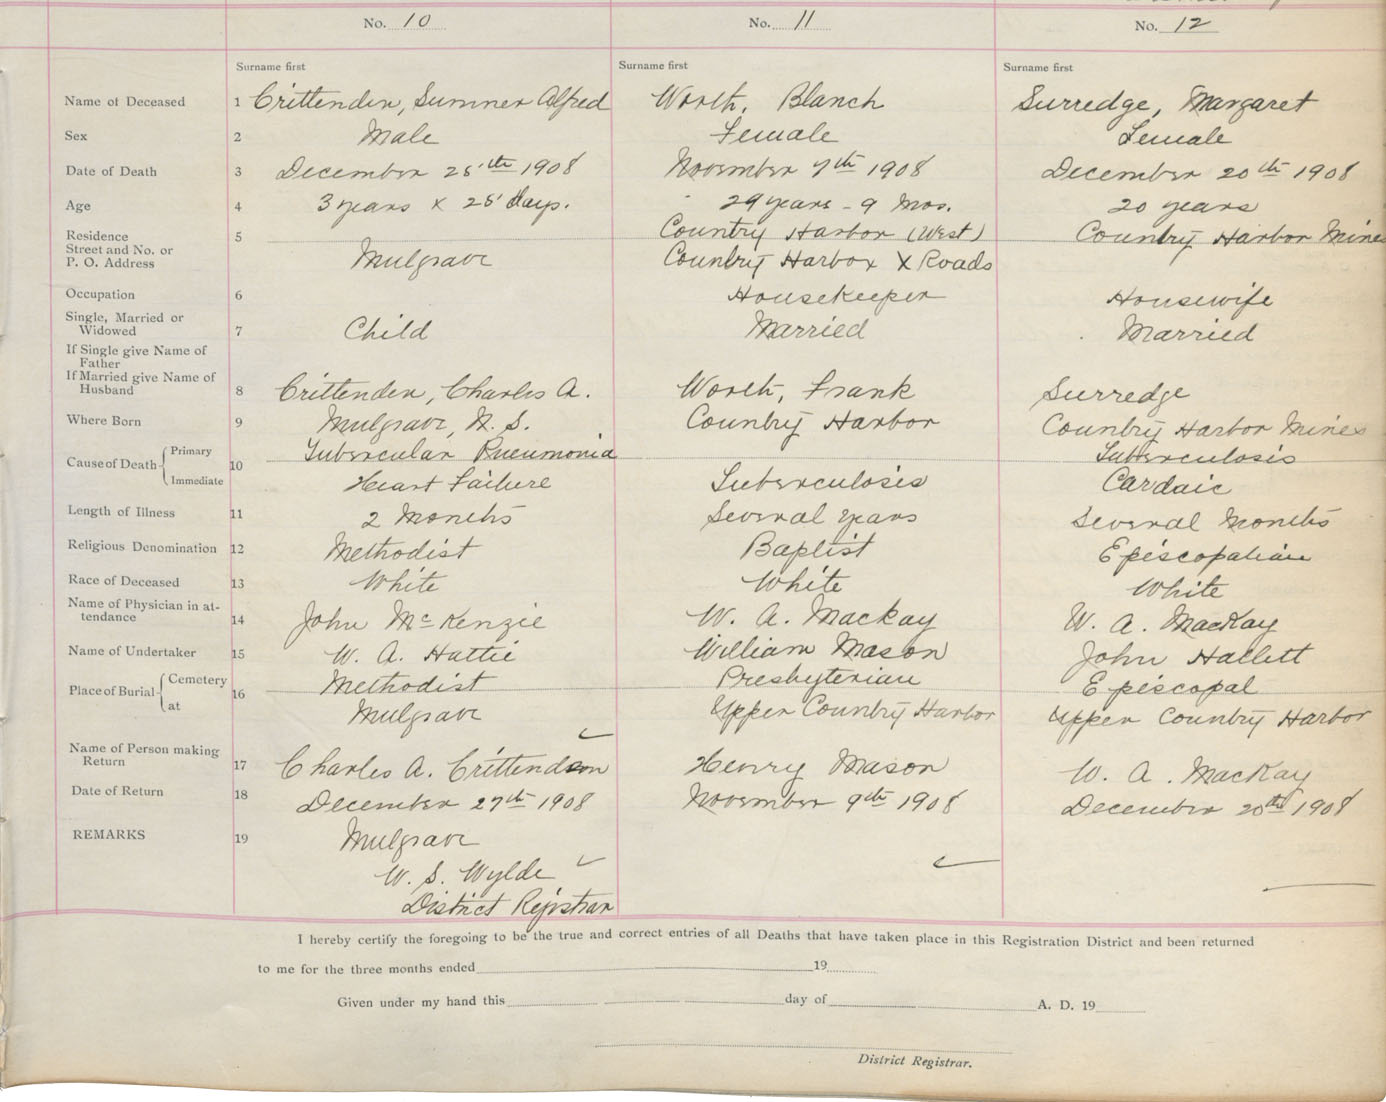 No. 10 No. 11 No. 12
Surname first Surname first Surname first
Name of Deceased 1 Crittenden, Sumner Alfred Worth, Blanch Surredge, Margaret
Sex 2 Male Female Female
Date of Death 3 December 25th 1908 November 7th 1908 December 20th 1908
Age 4 3 years x 25 days. 29 years - 9 mos. 20 years
Residence 5 Country Harbor (West) Country Harbor Mines
Street and No. or
P. O. Address Mulgrave Country Harbor X Roads
Occupation 6 Housekeeper Housewife
Single, Married or
Widowed 7 Child Married Married
If Single give Name of
Father
If Married give Name of
Husband 8 Crittenden, Charles A. Worth, Frank Surredge
Where Born 9 Mulgrave, N. S. Country Harbor Country Harbor Mines
Cause of Death Primary 10 Tubercular Pneumonia Tuberculosis
Immediate Heart Failure Tuberculosis Cardaic
Length of Illness 11 2 Months Several years Several Months
Religious Denomination 12 Methodist Baptist Episcopalian
Race of Deceased 13 White White White
Name of Physician in at-
tendance 14 John McKenzie W. A. Mackay W. A. MacKay
Name of Undertaker 15 W. A. Hattie William Mason John Hallett
Place of Burial Cemetery 16 Methodist Presbyterian Episcopal
at Mulgrave Upper Country Harbor Upper Country Harbor
Name of Person making
Return 17 Charles A. Crittendson Henry Mason W. A. MacKay
Date of Return 18 December 27th 1908 November 9th 1908 December 20th 1908
REMARKS 19 Mulgrave
W. S. Wylde
District Registrar
I hereby certify the foregoing to be the true and correct entries of all Deaths that have taken place in this Registration District and been returned
to me for the three months ended 19
Given under my hand this day of A. D. 19
District Registrar.